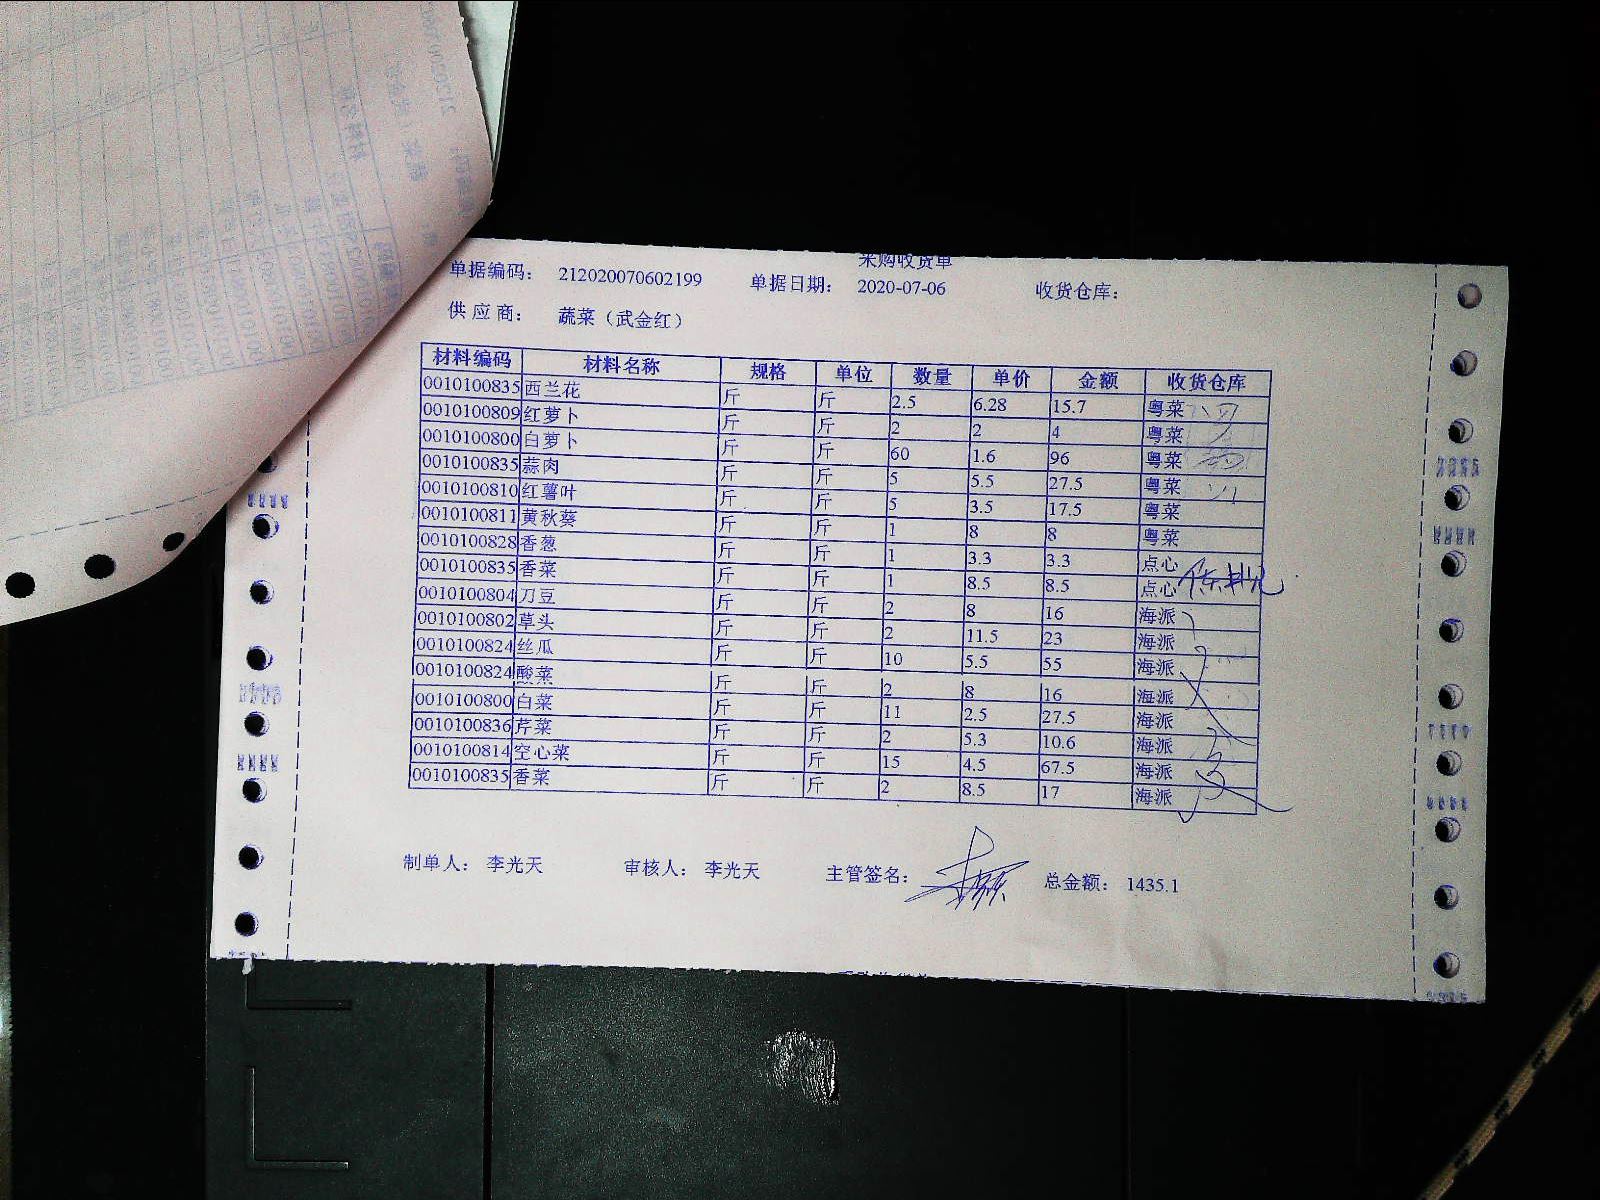 采购收货单
单据编码： 212020070602199 单据日期： 2020-07-06 收货仓库：
供 应 商： 蔬菜（武金红）
材料编码 材料名称 规格 单位 数量 单价 金额 收货仓库
0010100835 西兰花 斤 斤 2.5 6.28 15.7 粤菜
0010100809 红萝卜 斤 斤 2 2 4 粤菜
0010100800 白萝卜 斤 斤 60 1.6 96 粤菜
0010100835 蒜肉 斤 斤 5 5.5 27.5 粤菜
0010100810 红薯叶 斤 斤 5 3.5 17.5 粤菜
0010100811 黄秋葵 斤 斤 1 8 8 粤菜
0010100828 香葱 斤 斤 1 3.3 3.3 点心
0010100835 香菜 斤 斤 1 8.5 8.5 点心
0010100804 刀豆 斤 斤 2 8 16 海派
0010100802 草头 斤 斤 2 11.5 23 海派
0010100824 丝瓜 斤 斤 10 5.5 55 海派
0010100824 酸菜 斤 斤 2 8 16 海派
0010100800 白菜 斤 斤 11 2.5 27.5 海派
0010100836 芹菜 斤 斤 2 5.3 10.6 海派
0010100814 空心菜 斤 斤 15 4.5 67.5 海派
0010100835 香菜 斤 斤 2 8.5 17 海派
制单人： 李光天 审核人： 李光天 主管签名： 总金额： 1435.1